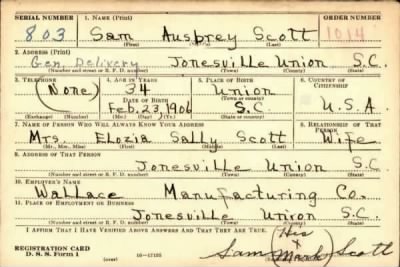 SERIAL NUMBER 1. NAME (Print) ORDER NUMBER
803 Sam Ausprey Scott 1014
(First) (Middle) (Last)
2. ADDRESS (Print)
Gen. Delivery Jonesville Union S.C.
(Number and street or R. F. D. number) (Town) (County) (State)
3. TELEPHONE 4. AGE IN YEARS 5. PLACE OF BIRTH 6. COUNTRY OF CITIZENSHIP
(None) 34 Union
DATE OF BIRTH (Town or county)
Feb. 23, 1906 S.C. U.S.A.
(Exchange) (Number) (Mo.) (Day) (Yr.) (State or country)
7. NAME OF PERSON WHO WILL ALWAYS KNOW YOUR ADDRESS 8. RELATIONSHIP OF THAT PERSON
Mrs. Elozia Sally Scott Wife
(Mr., Mrs., Miss) (First) (Middle) (Last)
9. ADDRESS OF THAT PERSON
Jonesville Union S.C.
(Number and street or R. F. D. number) (Town) (County) (State)
10. EMPLOYER'S NAME
Wallace Manufacturing Co.
11. PLACE OF EMPLOYMENT OR BUSINESS
Jonesville Union S.C.
(Number and street or R. F. D. number) (Town) (County) (State)
I AFFIRM THAT I HAVE VERIFIED ABOVE ANSWERS AND THAT THEY ARE TRUE.
His
REGISTRATION CARD Sam x Scott
D. S. S. Form 1 (over) 16-17105 Mark